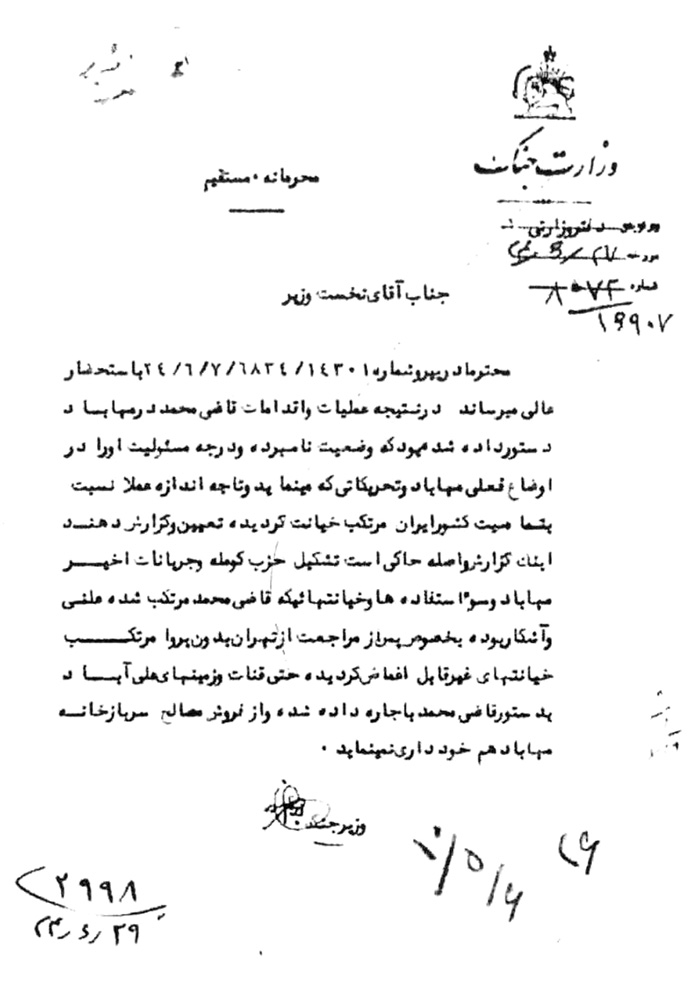 وزارت جنگ
محرمانه ۰ مستقیم
دفتر وزارتی
شماره ۸۰۷۲
۱۹۹۰۷
جناب آقای نخست وزیر
محترما در پیرو شماره ۱۴۳۰۱/۶۸۳۴/۷/۶/۲۴ باستحضار
عالی میرساند در نتیجه عملیات و اقدامات قاضی محمد در مهاباد
دستور داده شده بود که وضعیت نامبرده و درجه مسئولیت او را در
اوضاع فعلی مهاباد و تحریکاتی که مینماید و تا چه اندازه عملا نسبت
بتمامیت کشور ایران مرتکب خیانت گردیده تعیین و گزارش دهند
اینک گزارش واصله حاکی است تشکیل حزب کومله و جریانات اخیر
مهاباد و سوء استفاده ها و خیانتهائیکه قاضی محمد مرتکب شده علنی
و آشکار بوده بخصوص پس از مراجعت از تهران بدون پروا مرتکب
خیانتهای غیر قابل اغماض گردیده حتی قنات و زمینهای علی آباد
بدستور قاضی محمد باجاره داده شده و از فروش مصالح سربازخانه
مهاباد هم خودداری نمینماید ۰
وزیر جنگ
۲۹۹۸